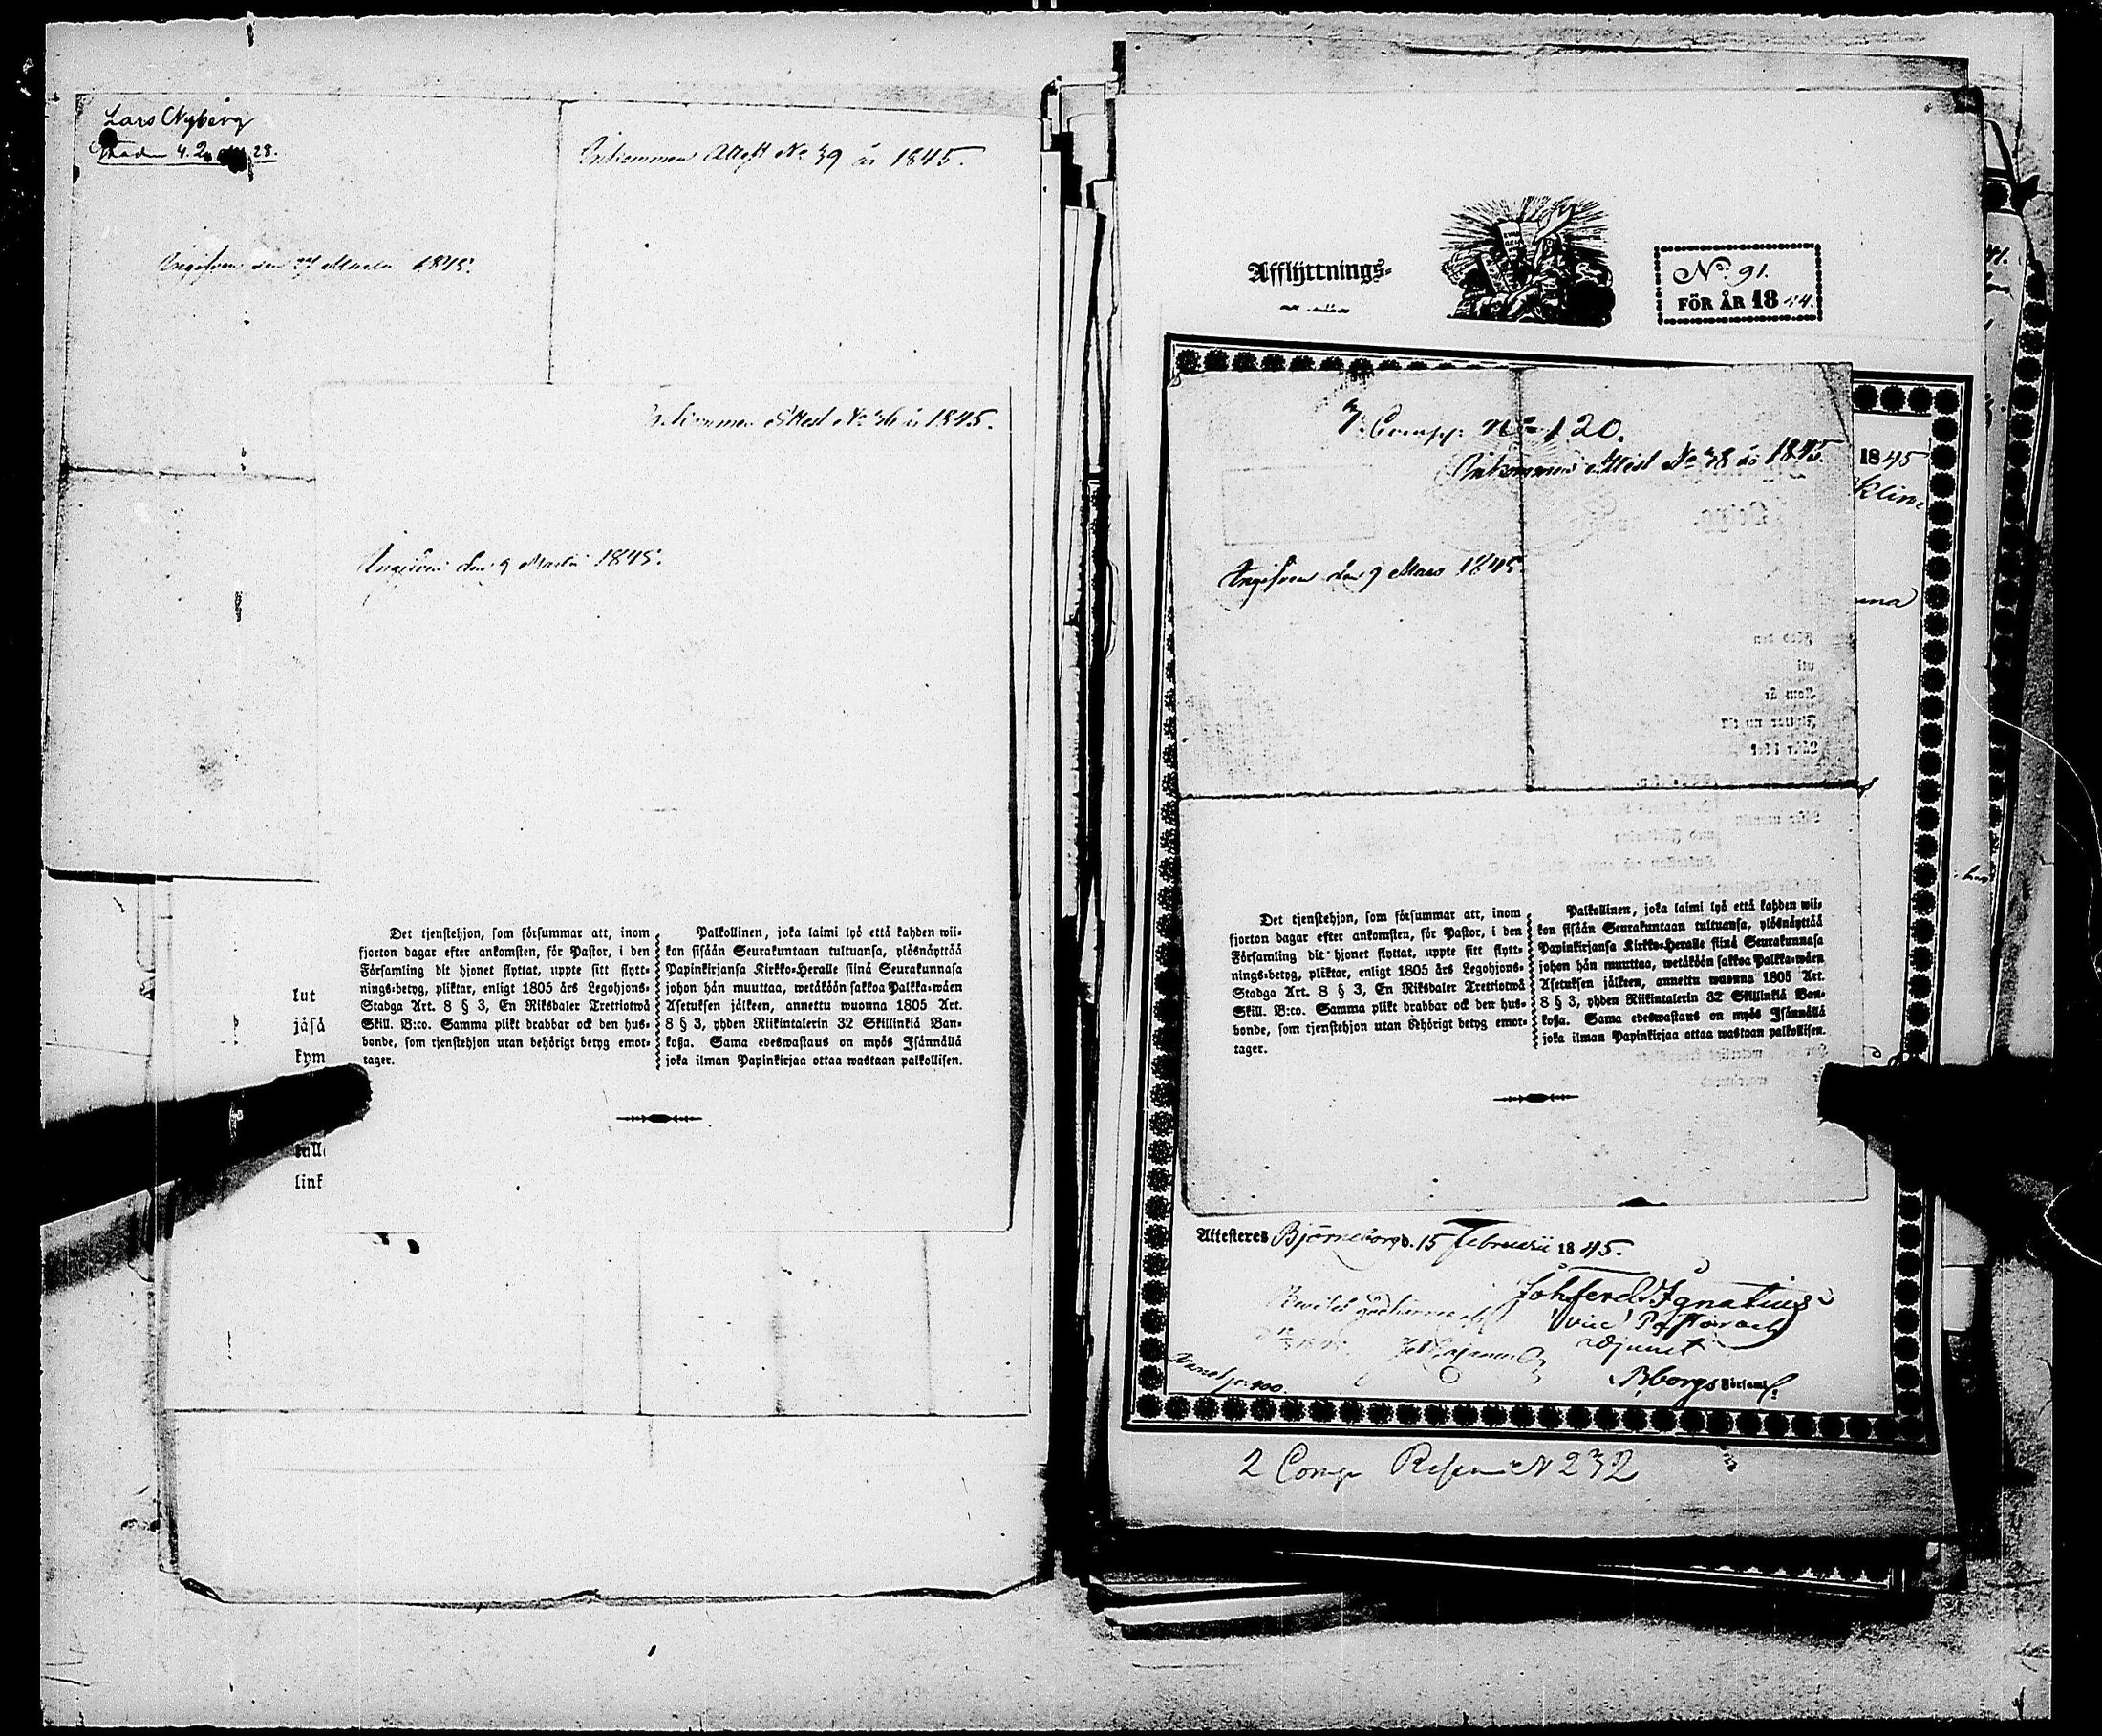 Lars Nyberg
4.2 28.
Inkommen Attest No 39 år 1845.
Angifven den 27 Martii 1845.
Inkommen Attest No 36 år 1845.
Angifven den 9 Martii 1845.
Det tjenstehjon, som försummar att, inom
fjorton dagar efter ankomsten, för Pastor, i den
Församling dit hjonet flyttat, uppte sitt flytt-
nings-betyg, pliktar, enligt 1805 års Legohjons-
Stadga Art. 8 § 3, En Riksdaler Trettiotwå
Skill. B:co. Samma plikt drabbar ock den hus-
bonde, som tjenstehjon utan behörigt betyg emot-
tager.
Palkollinen, joka laimi lyö että kahden wii-
kon sisään Seurakuntaan tultuansa, ylösnäyttää
Papinkirjansa Kirkko-Heralle siinä Seurakunnasa
johon hän muuttaa, wetäköön sakkoa Palkka-wäen
Asetuksen jälkeen, annettu wuonna 1805 Art.
8 § 3, yhden Riikintalerin 32 Skillinkiä Ban-
koßa. Sama edeswastaus on myös Isännällä
joka ilman Papinkirjaa ottaa wastaan palkollisen.
lut
jäsä
kym
link
Afflyttnings-
No. 91.
FÖR ÅR 1844.
Comp: No 120.
Inkommen Attest No 38 år 1845.
1845
klin
Angifven den 9 Mars 1845.
Det tjenstehjon, som försummar att, inom
fjorton dagar efter ankomsten, för Pastor, i den
Församling dit hjonet flyttat, uppte sitt flytt-
nings-betyg, pliktar, enligt 1805 års Legohjons-
Stadga Art. 8 § 3, En Riksdaler Trettiotwå
Skill. B:co. Samma plikt drabbar ock den hus-
bonde, som tjenstehjon utan behörigt betyg emot-
tager.
Palkollinen, joka laimi lyö että kahden wii-
kon sisään Seurakuntaan tultuansa, ylösnäyttää
Papinkirjansa Kirkko-Heralle siinä Seurakunnasa
johon hän muuttaa, wetäköön sakkoa Palkka-wäen
Asetuksen jälkeen, annettu wuonna 1805 Art.
8 § 3, yhden Riikintalerin 32 Skillinkiä Ban-
koßa. Sama edeswastaus on myös Isännällä
joka ilman Papinkirjaa ottaa wastaan palkollisen.
Attesteres Björneborg d. 15 Februarii 1845.
Joh Ferd. Ignatius
vice Pastor och
adjunct
Bborgs Församl.
2 Comp N 232